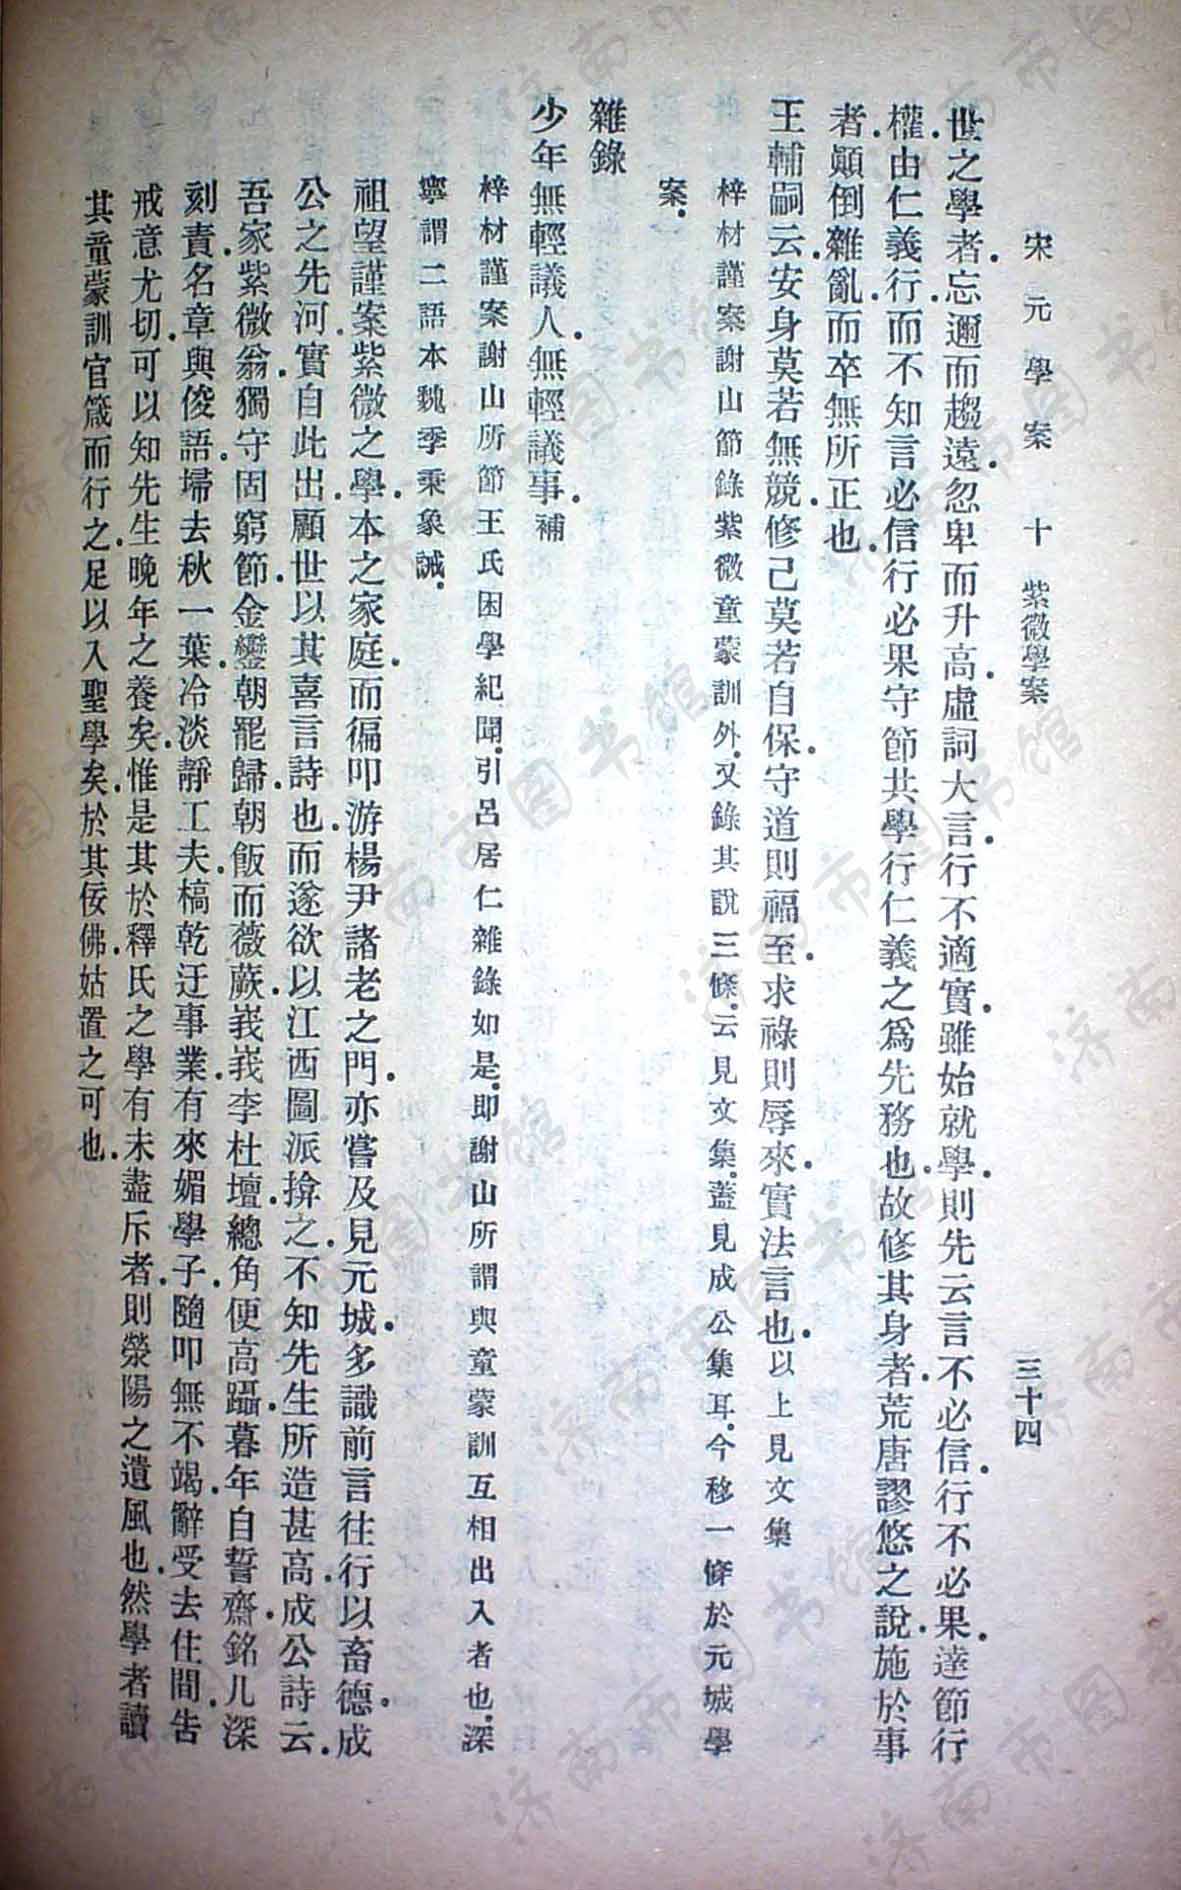 宋元學案 十 紫微學案 三十四
世之學者.忘邇而趨遠.忽卑而升高.虛詞大言.行不適實.雖始就學.則先云言不必信.行不必果.達節行
權.由仁義行.而不知言必信行必果守節共學行仁義之爲先務也.故修其身者.荒唐謬悠之說.施於事
者.顚倒雜亂.而卒無所正也.
王輔嗣云.安身莫若無競.修己莫若自保.守道則福至.求祿則辱來.實法言也.以上見文集
梓材謹案謝山節錄紫微童蒙訓外.又錄其說三條.云見文集.蓋見成公集耳.今移一條於元城學
案.
雜錄
少年無輕議人.無輕議事.補
梓材謹案謝山所節王氏困學紀聞.引呂居仁雜錄如是.即謝山所謂與童蒙訓互相出入者也.深
寧謂二語本魏季秉象誡.
祖望謹案紫微之學.本之家庭.而徧叩游楊尹諸老之門.亦嘗及見元城.多識前言往行以畜德.成
公之先河.實自此出.顧世以其喜言詩也.而遂欲以江西圖派揜之.不知先生所造甚高.成公詩云.
吾家紫微翁.獨守固窮節.金鑾朝罷歸.朝飯而薇蕨.峩峩李杜壇.總角便高躡.暮年自誓齋.銘几深
刻責.名章與俊語.埽去秋一葉.冷淡靜工夫.槁乾迂事業.有來媚學子.隨叩無不竭.辭受去住間.告
戒意尤切.可以知先生晚年之養矣.惟是其於釋氏之學有未盡斥者.則滎陽之遺風也.然學者讀
其童蒙訓官箴而行之.足以入聖學矣.於其佞佛.姑置之可也.
济南市图书馆